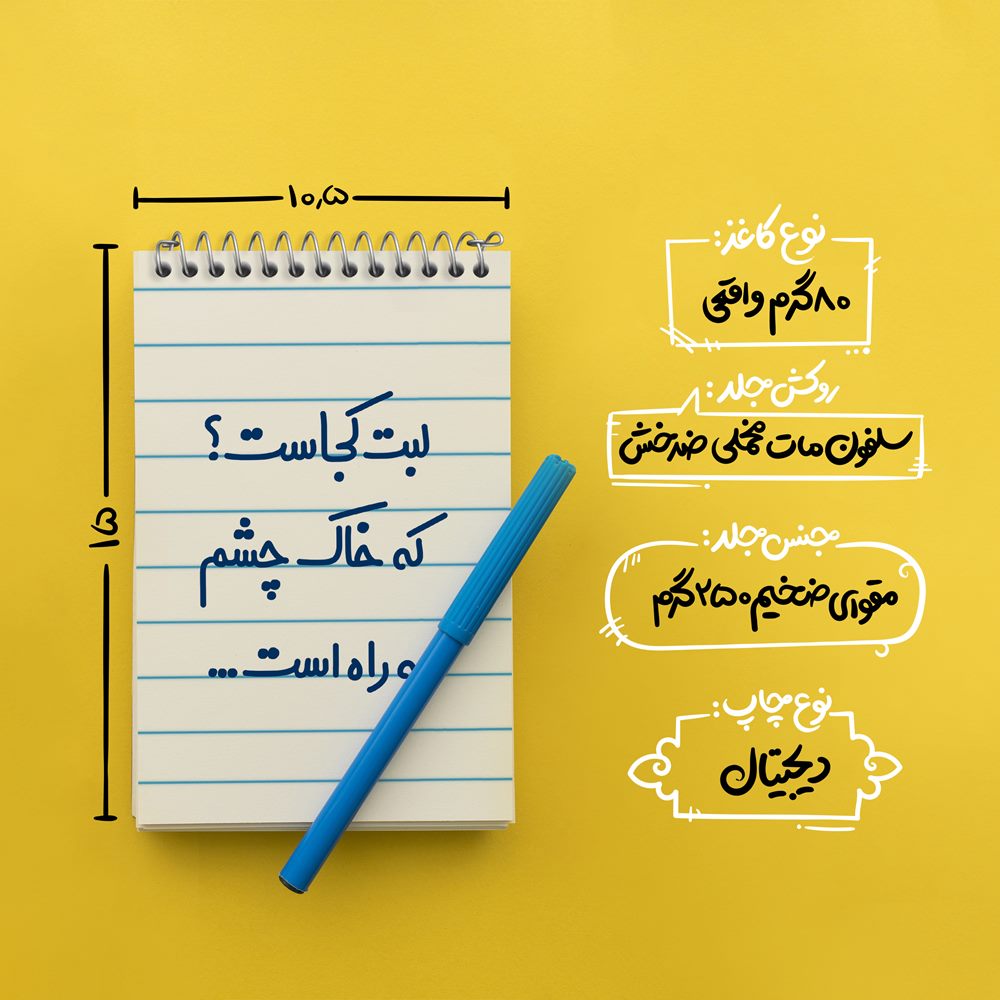 ۱۰٫۵
۱۵
لبت کجاست؟
که خاک چشم
به راه است...
نوع کاغذ:
۸۰ گرم واقعی
روکش جلد:
سلفون مات مخملی ضدخش
جنس جلد:
مقوای ضخیم ۲۵۰ گرم
نوع چاپ:
دیجیتال